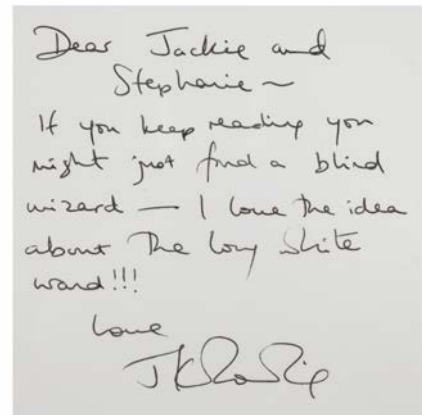 Dear Jackie and
Stephanie ~
If you keep reading you
might just find a blind
wizard — I love the idea
about the long white
wand!!!
Love
JK Rowling